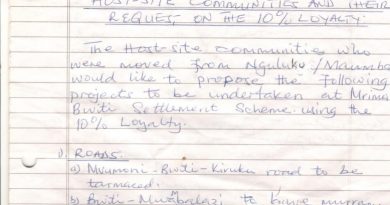 HOST-SITE COMMUNITIES AND THEIR
REQUEST ON THE 10% LOYALTY.
The Host-site communities who
were moved from Nguluku/Maumba
would like to propose the following
projects to be undertaken at Mrima
Bwiti Settlement Scheme using the
10% Loyalty.
1) ROADS.
a) Mvumoni-Bwiti-Kiruku road to be
tarmaced.
b) Bwiti- to have murram